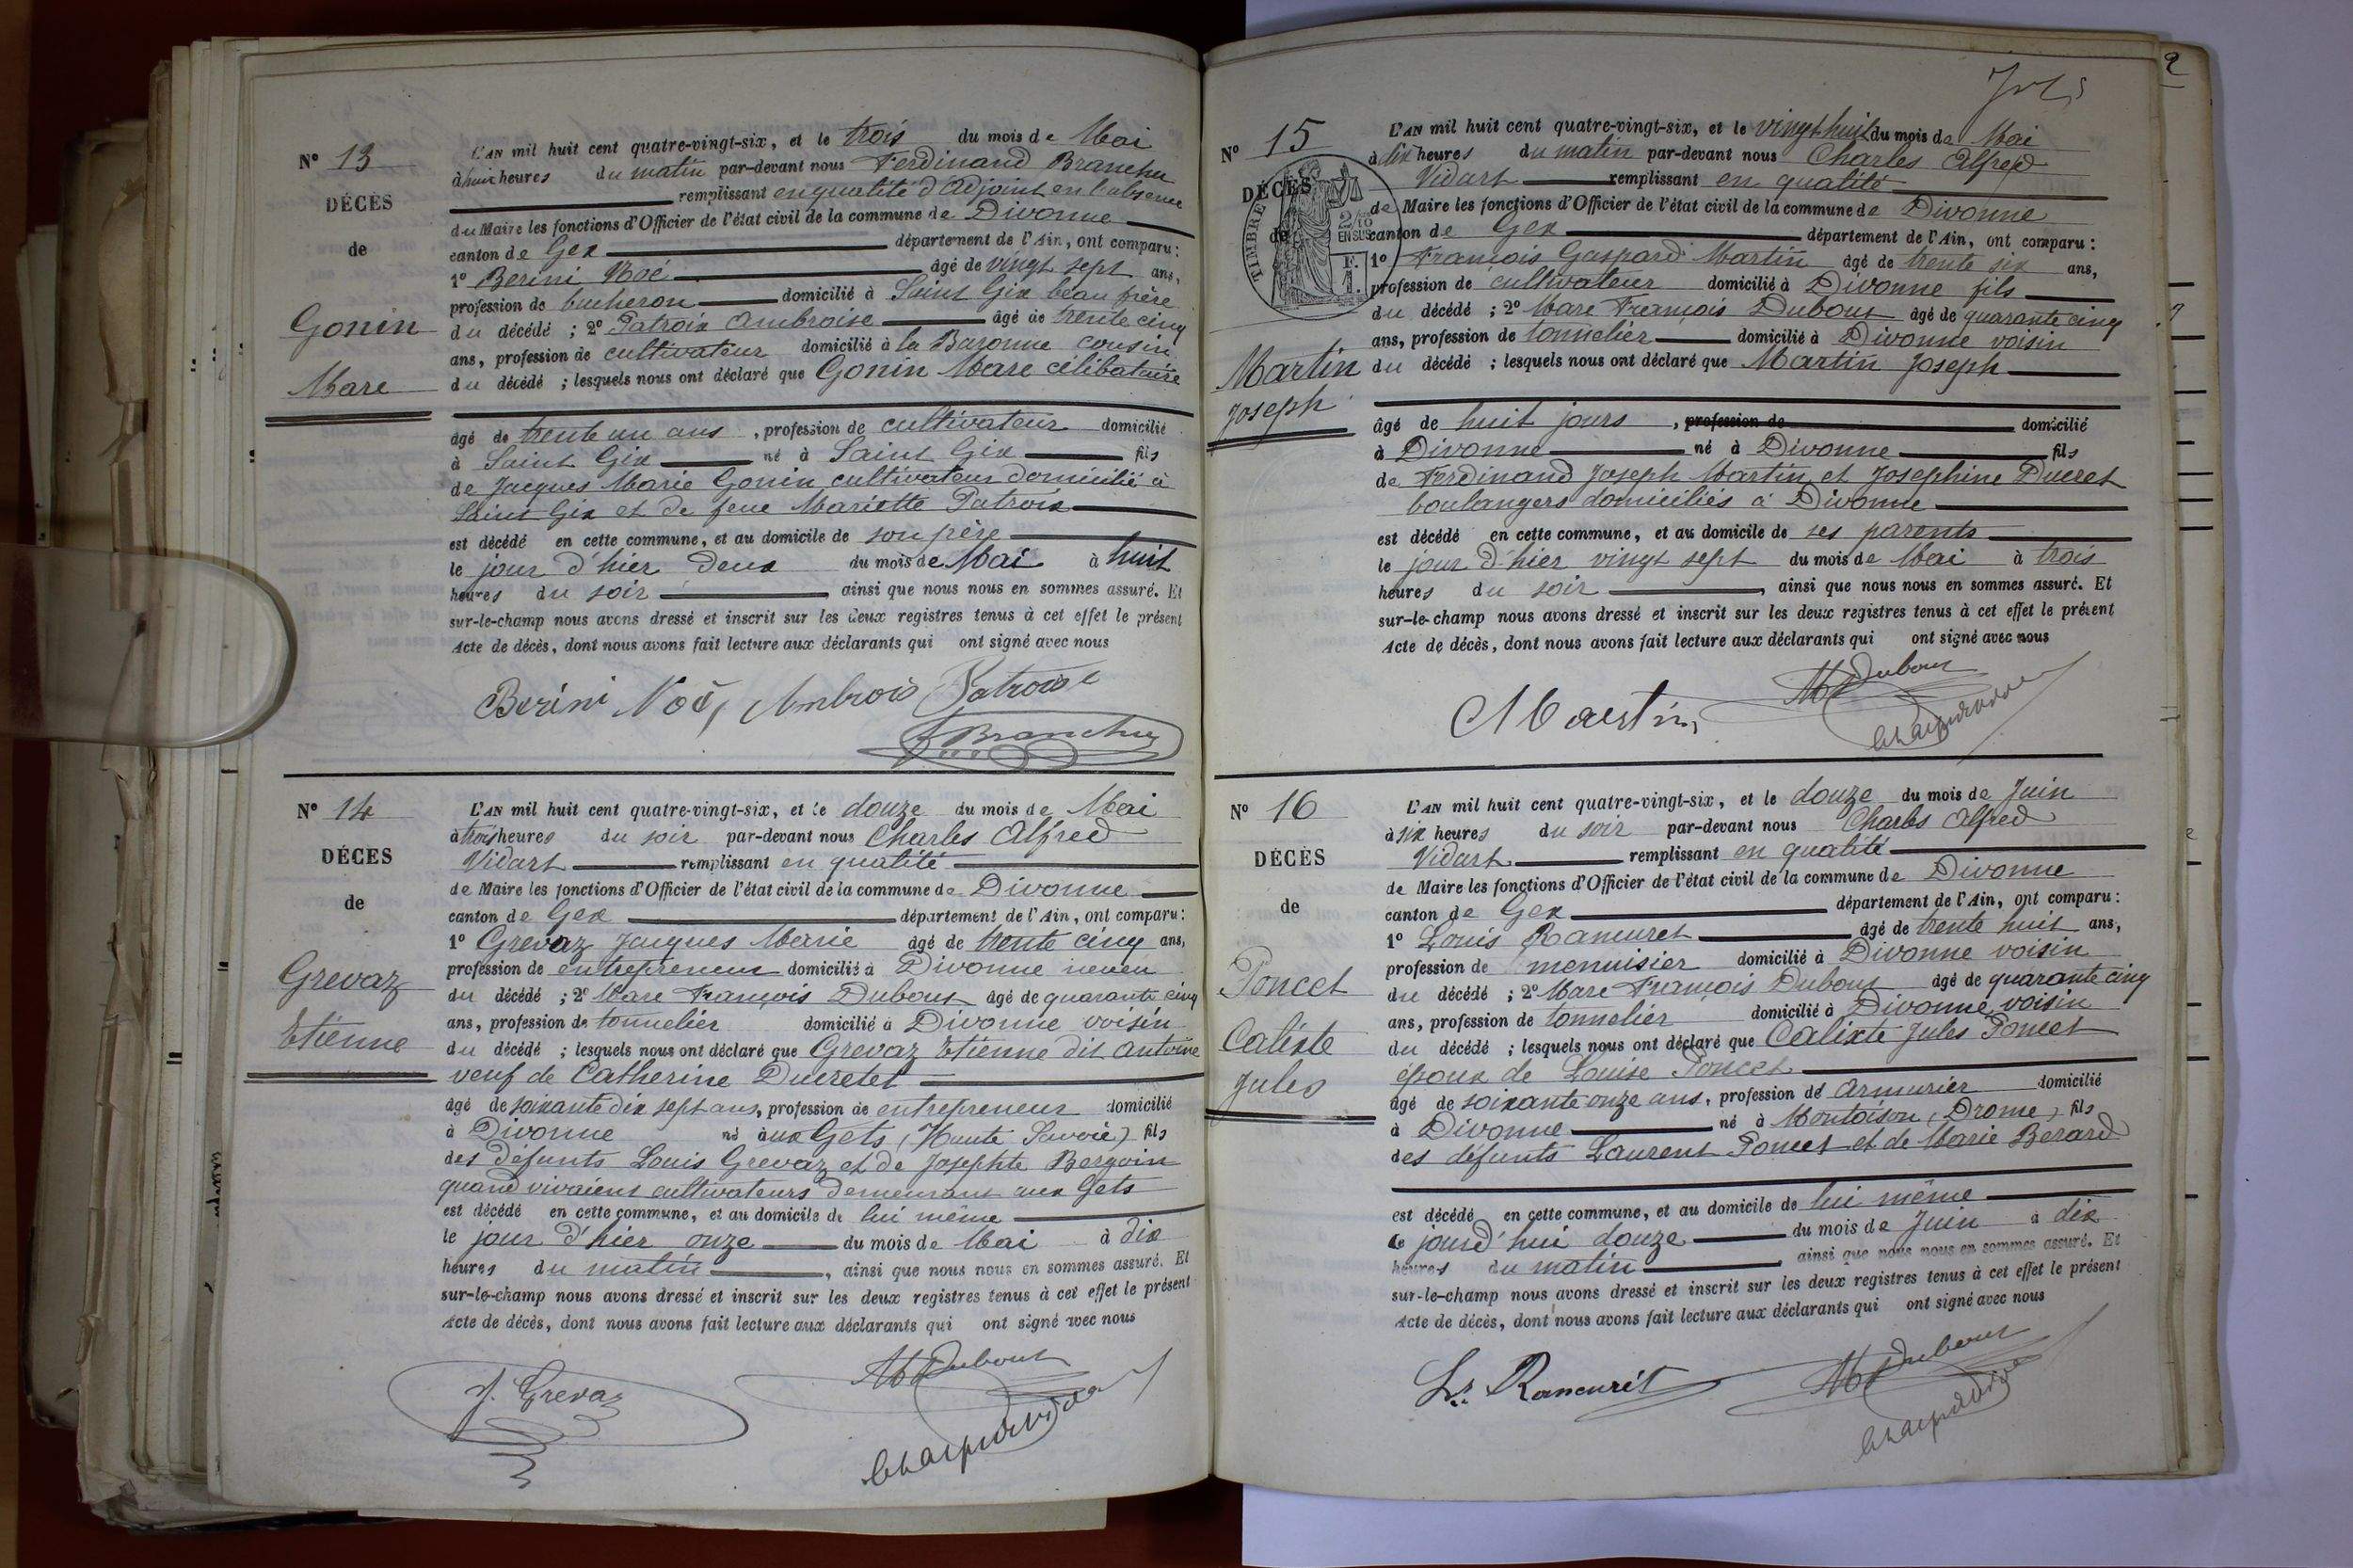 N° 13
DÉCÈS
de
Gonin
Marc
L'AN mil huit cent quatre-vingt-six, et le trois du mois de Mai
à huit heures du matin par-devant nous Ferdinand Branchu
remplissant en qualité d'Adjoint en l'absence
du Maire les fonctions d'Officier de l'état civil de la commune de Divonne
canton de Gex département de l'Ain, ont comparu :
1° Berini Noé âgé de vingt sept ans,
profession de bucheron domicilié à Saint Gix beau frère
du décédé ; 2° Patroix Ambroise âgé de trente cinq
ans, profession de cultivateur domicilié à la Baronne cousin
du décédé ; lesquels nous ont déclaré que Gonin Marc célibataire
âgé de trente un ans, profession de cultivateur domicilié
à Saint Gix né à Saint Gix fils
de Jacques Marie Gonin cultivateur domicilié à
Saint Gix et de feue Mariette Patroix
est décédé en cette commune, et au domicile de son père
le jour d'hier deux du mois de Mai à huit
heures du soir ainsi que nous nous en sommes assuré. Et
sur-le-champ nous avons dressé et inscrit sur les deux registres tenus à cet effet le présent
Acte de décès, dont nous avons fait lecture aux déclarants qui ont signé avec nous
Berini Noé, Ambrois Patroix
F Branchu
N° 14
DÉCÈS
de
Grevaz
Etienne
L'AN mil huit cent quatre-vingt-six, et le douze du mois de Mai
à trois heures du soir par-devant nous Charles Alfred
Vidart remplissant en qualité
de Maire les fonctions d'Officier de l'état civil de la commune de Divonne
canton de Gex département de l'Ain, ont comparu :
1° Grevaz Jacques Marie âgé de trente cinq ans,
profession de entrepreneur domicilié à Divonne neveu
du décédé ; 2° Marc François Dubout âgé de quarante cinq
ans, profession de tonnelier domicilié à Divonne voisin
du décédé ; lesquels nous ont déclaré que Grevaz Etienne dit Antoine
veuf de Catherine Ducretet
âgé de soixante dix sept ans, profession de entrepreneur domicilié
à Divonne né aux Gets (Haute Savoie) fils
des défunts Louis Grevaz et de Josephte Bergoin
quand vivaient cultivateurs demeurant aux Gets
est décédé en cette commune, et au domicile de lui même
le jour d'hier onze du mois de Mai à dix
heures du matin, ainsi que nous nous en sommes assuré. Et
sur-le-champ nous avons dressé et inscrit sur les deux registres tenus à cet effet le présent
Acte de décès, dont nous avons fait lecture aux déclarants qui ont signé avec nous
J. Grevaz
M F Dubout
2
N° 15
DÉCÈS
de
TIMBRE
2/10
EN SUS
Martin
Joseph
L'AN mil huit cent quatre-vingt-six, et le vingt huit du mois de Mai
à dix heures du matin par-devant nous Charles Alfred
Vidart remplissant en qualité
de Maire les fonctions d'Officier de l'état civil de la commune de Divonne
canton de Gex département de l'Ain, ont comparu :
1° François Gaspard Martin âgé de trente six ans,
profession de cultivateur domicilié à Divonne fils
du décédé ; 2° Marc François Dubout âgé de quarante cinq
ans, profession de tonnelier domicilié à Divonne voisin
du décédé ; lesquels nous ont déclaré que Martin Joseph
âgé de huit jours, profession de domicilié
à Divonne né à Divonne fils
de Ferdinand Joseph Martin et Josephine Ducret
boulangers domiciliés à Divonne
est décédé en cette commune, et au domicile de ses parents
le jour d'hier vingt sept du mois de Mai à trois
heures du soir, ainsi que nous nous en sommes assuré. Et
sur-le-champ nous avons dressé et inscrit sur les deux registres tenus à cet effet le présent
Acte de décès, dont nous avons fait lecture aux déclarants qui ont signé avec nous
Martin
M F Dubout
N° 16
DÉCÈS
de
Poncet
Calixte
Jules
L'AN mil huit cent quatre-vingt-six, et le douze du mois de Juin
à six heures du soir par-devant nous Charles Alfred
Vidart remplissant en qualité
de Maire les fonctions d'Officier de l'état civil de la commune de Divonne
canton de Gex département de l'Ain, ont comparu :
1° Louis Rancuret âgé de trente huit ans,
profession de menuisier domicilié à Divonne voisin
du décédé ; 2° Marc François Dubout âgé de quarante cinq
ans, profession de tonnelier domicilié à Divonne voisin
du décédé ; lesquels nous ont déclaré que Calixte Jules Poncet
époux de Louise Poncet
âgé de soixante onze ans, profession de armurier domicilié
à Divonne né à Montoison (Drome) fils
des défunts Laurent Poncet et de Marie Berard
est décédé en cette commune, et au domicile de lui même
le jourd'hui douze du mois de Juin à dix
heures du matin, ainsi que nous nous en sommes assuré. Et
sur-le-champ nous avons dressé et inscrit sur les deux registres tenus à cet effet le présent
Acte de décès, dont nous avons fait lecture aux déclarants qui ont signé avec nous
Ls. Rancurét
M F Dubout